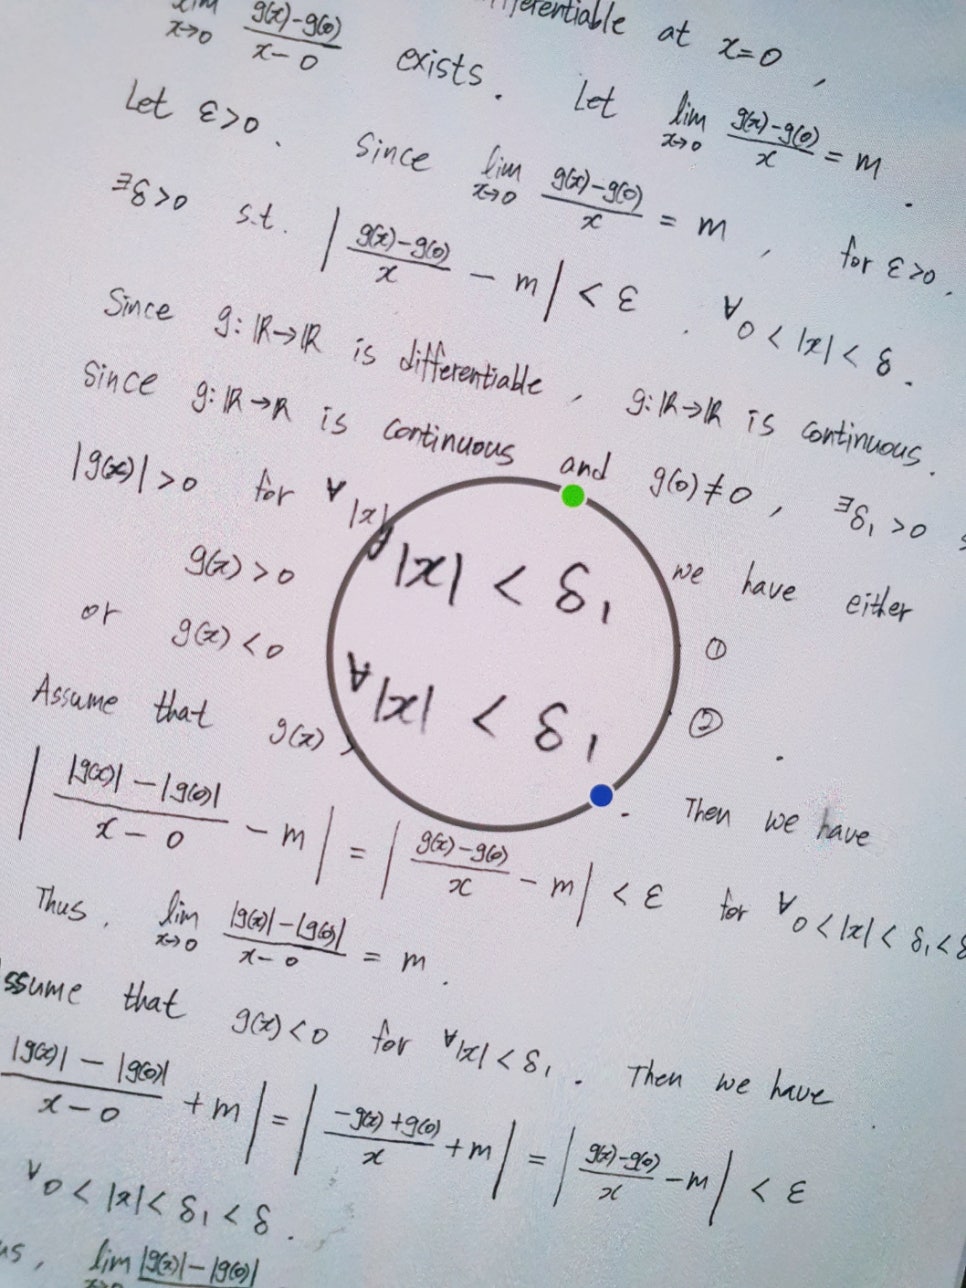 lim x→0 (g(x)-g(0))/(x-0) exists. Let lim x→0 (g(x)-g(0))/x = m.
at x=0,
Let ε>0. Since lim x→0 (g(x)-g(0))/x = m, for ε>0,
∃δ>0 s.t. |(g(x)-g(0))/x - m| < ε, ∀0<|x|<δ.
Since g:ℝ→ℝ is differentiable, g:ℝ→ℝ is continuous.
Since g:ℝ→ℝ is continuous and g(0)≠0, ∃δ₁>0
|g(x)|>0 for ∀|x| we have either
g(x)>0 ∀|x| < δ₁ ①
or g(x)<0 ∀|x| > δ₁ ②.
Assume that g(x) . Then we have
|(|g(x)|-|g(0)|)/(x-0) - m| = |(g(x)-g(0))/x - m| < ε for ∀0<|x|<δ₁<δ
Thus, lim x→0 (|g(x)|-|g(0)|)/(x-0) = m.
that g(x)<0 for ∀|x|<δ₁. Then we have
(|g(x)|-|g(0)|)/(x-0) + m| = |(-g(x)+g(0))/x + m| = |(g(x)-g(0))/x - m| < ε
∀0<|x|<δ₁<δ.
lim |g(x)|-|g(0)|